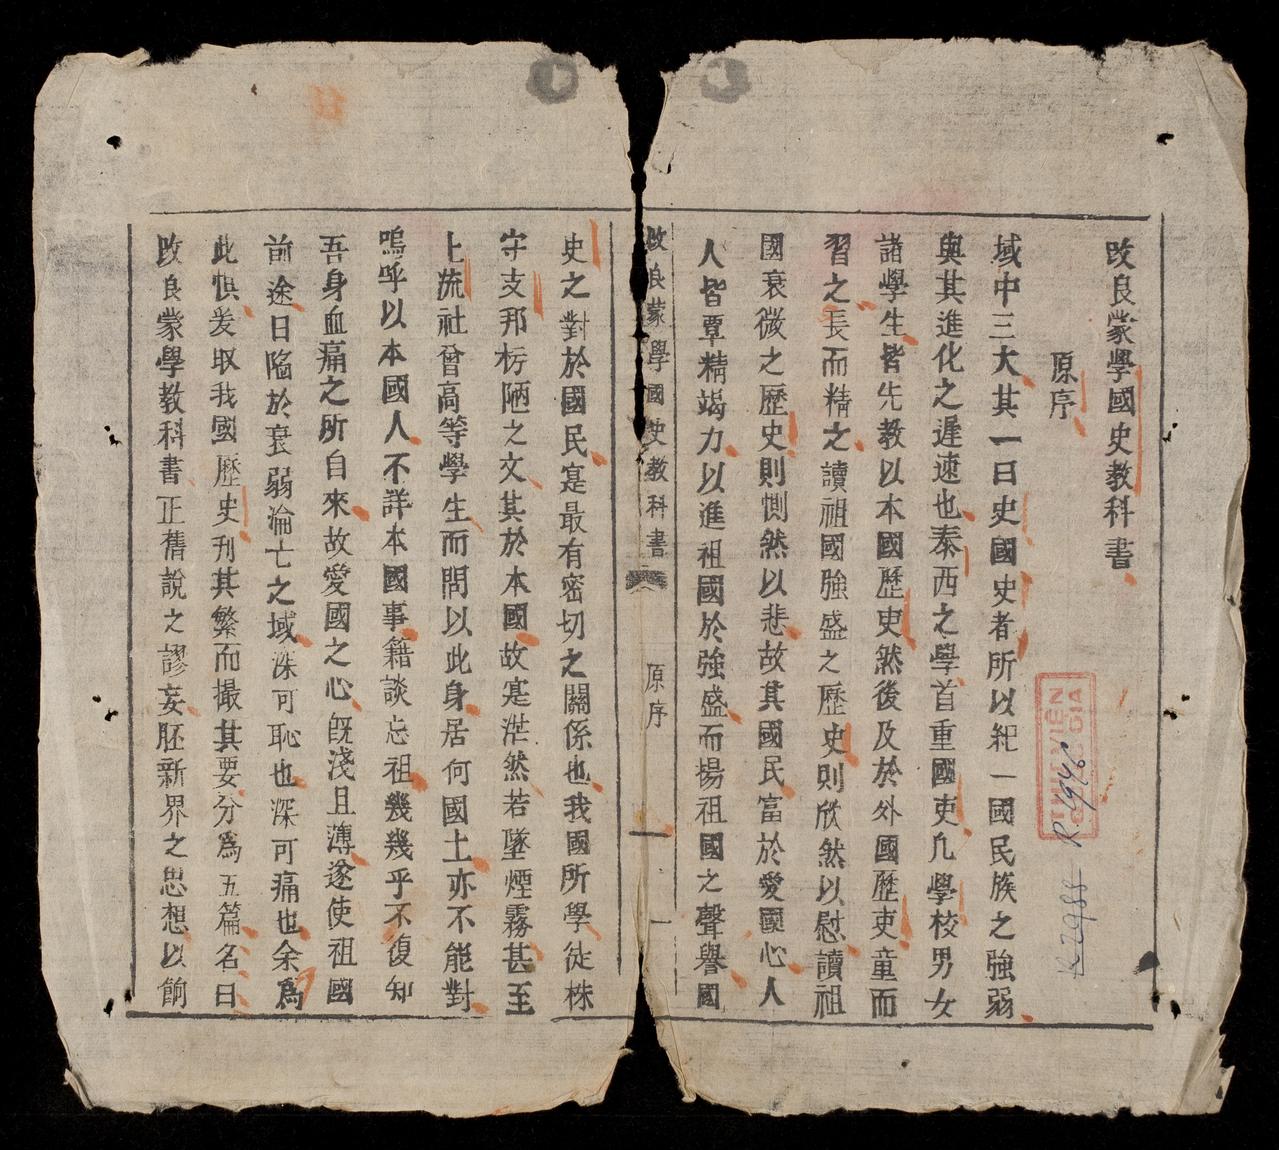 改良蒙學國史教科書
原序
域中三大其一曰史國史者所以紀一國民族之強弱
與其進化之遲速也泰西之學首重國史凡學校男女
諸學生皆先教以本國歷史然後及於外國歷史童而
習之長而精之讀祖國強盛之歷史則欣然以慰讀祖
國衰微之歷史則惻然以悲故其國民富於愛國心人
人皆覃精竭力以進祖國於強盛而揚祖國之聲譽國
改良蒙學國史教科書
原序
一
史之對於國民寔最有密切之關係也我國所學徒株
守支邦朽陋之文其於本國故寔茫然若墜煙霧甚至
上流社會高等學生而問以此身居何國土亦不能對
嗚呼以本國人不詳本國事籍談忘祖幾幾乎不復知
吾身血痛之所自來故愛國之心旣淺且薄遂使祖國
前途日陷於衰弱淪亡之域深可恥也深可痛也余爲
此惧爰取我國歷史刊其繁而撮其要分爲五篇名曰
改良蒙學教科書正舊說之謬妄胚新界之思想以餉
THƯ VIỆN
QUỐC GIA